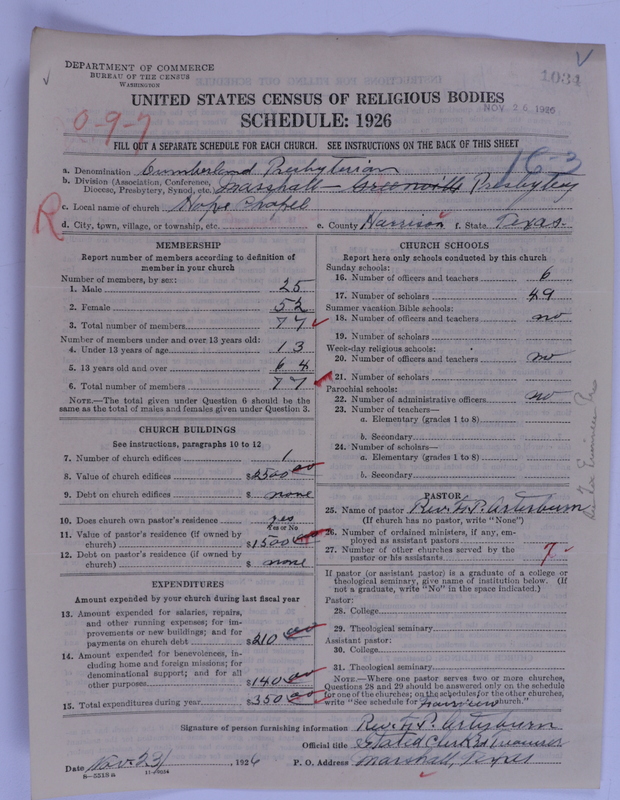 DEPARTMENT OF COMMERCE
BUREAU OF THE CENSUS
WASHINGTON
1034
UNITED STATES CENSUS OF RELIGIOUS BODIES
NOV 26 1926
SCHEDULE: 1926
0-9-7
FILL OUT A SEPARATE SCHEDULE FOR EACH CHURCH. SEE INSTRUCTIONS ON THE BACK OF THIS SHEET
16-3
a. Denomination Cumberland Presbyterian
b. Division (Association, Conference, Diocese, Presbytery, Synod, etc.) Marshall - Greenville Presbytery
c. Local name of church Hope Chapel
R
d. City, town, village, or township, etc. e. County Harrison f. State Texas
MEMBERSHIP
Report number of members according to definition of
member in your church
Number of members, by sex:
1. Male 25
2. Female 52
3. Total number of members 77
Number of members under and over 13 years old:
4. Under 13 years of age 13
5. 13 years old and over 64
6. Total number of members 77
NOTE.—The total given under Question 6 should be the
same as the total of males and females given under Question 3.
CHURCH BUILDINGS
See instructions, paragraphs 10 to 12
7. Number of church edifices 1
8. Value of church edifices $2500 00
9. Debt on church edifices $ none
10. Does church own pastor's residence yes
Yes or No
11. Value of pastor's residence (if owned by
church) $1500 00
12. Debt on pastor's residence (if owned by
church) $ none
EXPENDITURES
Amount expended by your church during last fiscal year
13. Amount expended for salaries, repairs,
and other running expenses; for im-
provements or new buildings; and for
payments on church debt $210 00
14. Amount expended for benevolences, in-
cluding home and foreign missions; for
denominational support; and for all
other purposes $140 00
15. Total expenditures during year $350 00
CHURCH SCHOOLS
Report here only schools conducted by this church
Sunday schools:
16. Number of officers and teachers 6
17. Number of scholars 49
Summer vacation Bible schools:
18. Number of officers and teachers no
19. Number of scholars
Week-day religious schools:
20. Number of officers and teachers no
21. Number of scholars
Parochial schools:
22. Number of administrative officers no
23. Number of teachers—
a. Elementary (grades 1 to 8)
b. Secondary
24. Number of scholars—
a. Elementary (grades 1 to 8)
b. Secondary
PASTOR
25. Name of pastor Rev. F. P. Arterburn
(If church has no pastor, write "None")
26. Number of ordained ministers, if any, em-
ployed as assistant pastors
27. Number of other churches served by the
pastor or his assistants 7
If pastor (or assistant pastor) is a graduate of a college or
theological seminary, give name of institution below. (If
not a graduate, write "No" in the space indicated.)
Pastor:
28. College
29. Theological seminary
Assistant pastor:
30. College
31. Theological seminary
NOTE.—Where one pastor serves two or more churches,
Questions 28 and 29 should be answered only on the schedule
for one of the churches; on the schedules for the other churches,
write "See schedule for church."
Signature of person furnishing information Rev. F. P. Arterburn
Official title Stated Clerk & Treasurer
Date Nov. 23, 1926 P. O. Address Marshall, Texas
8-5515a 11-9034